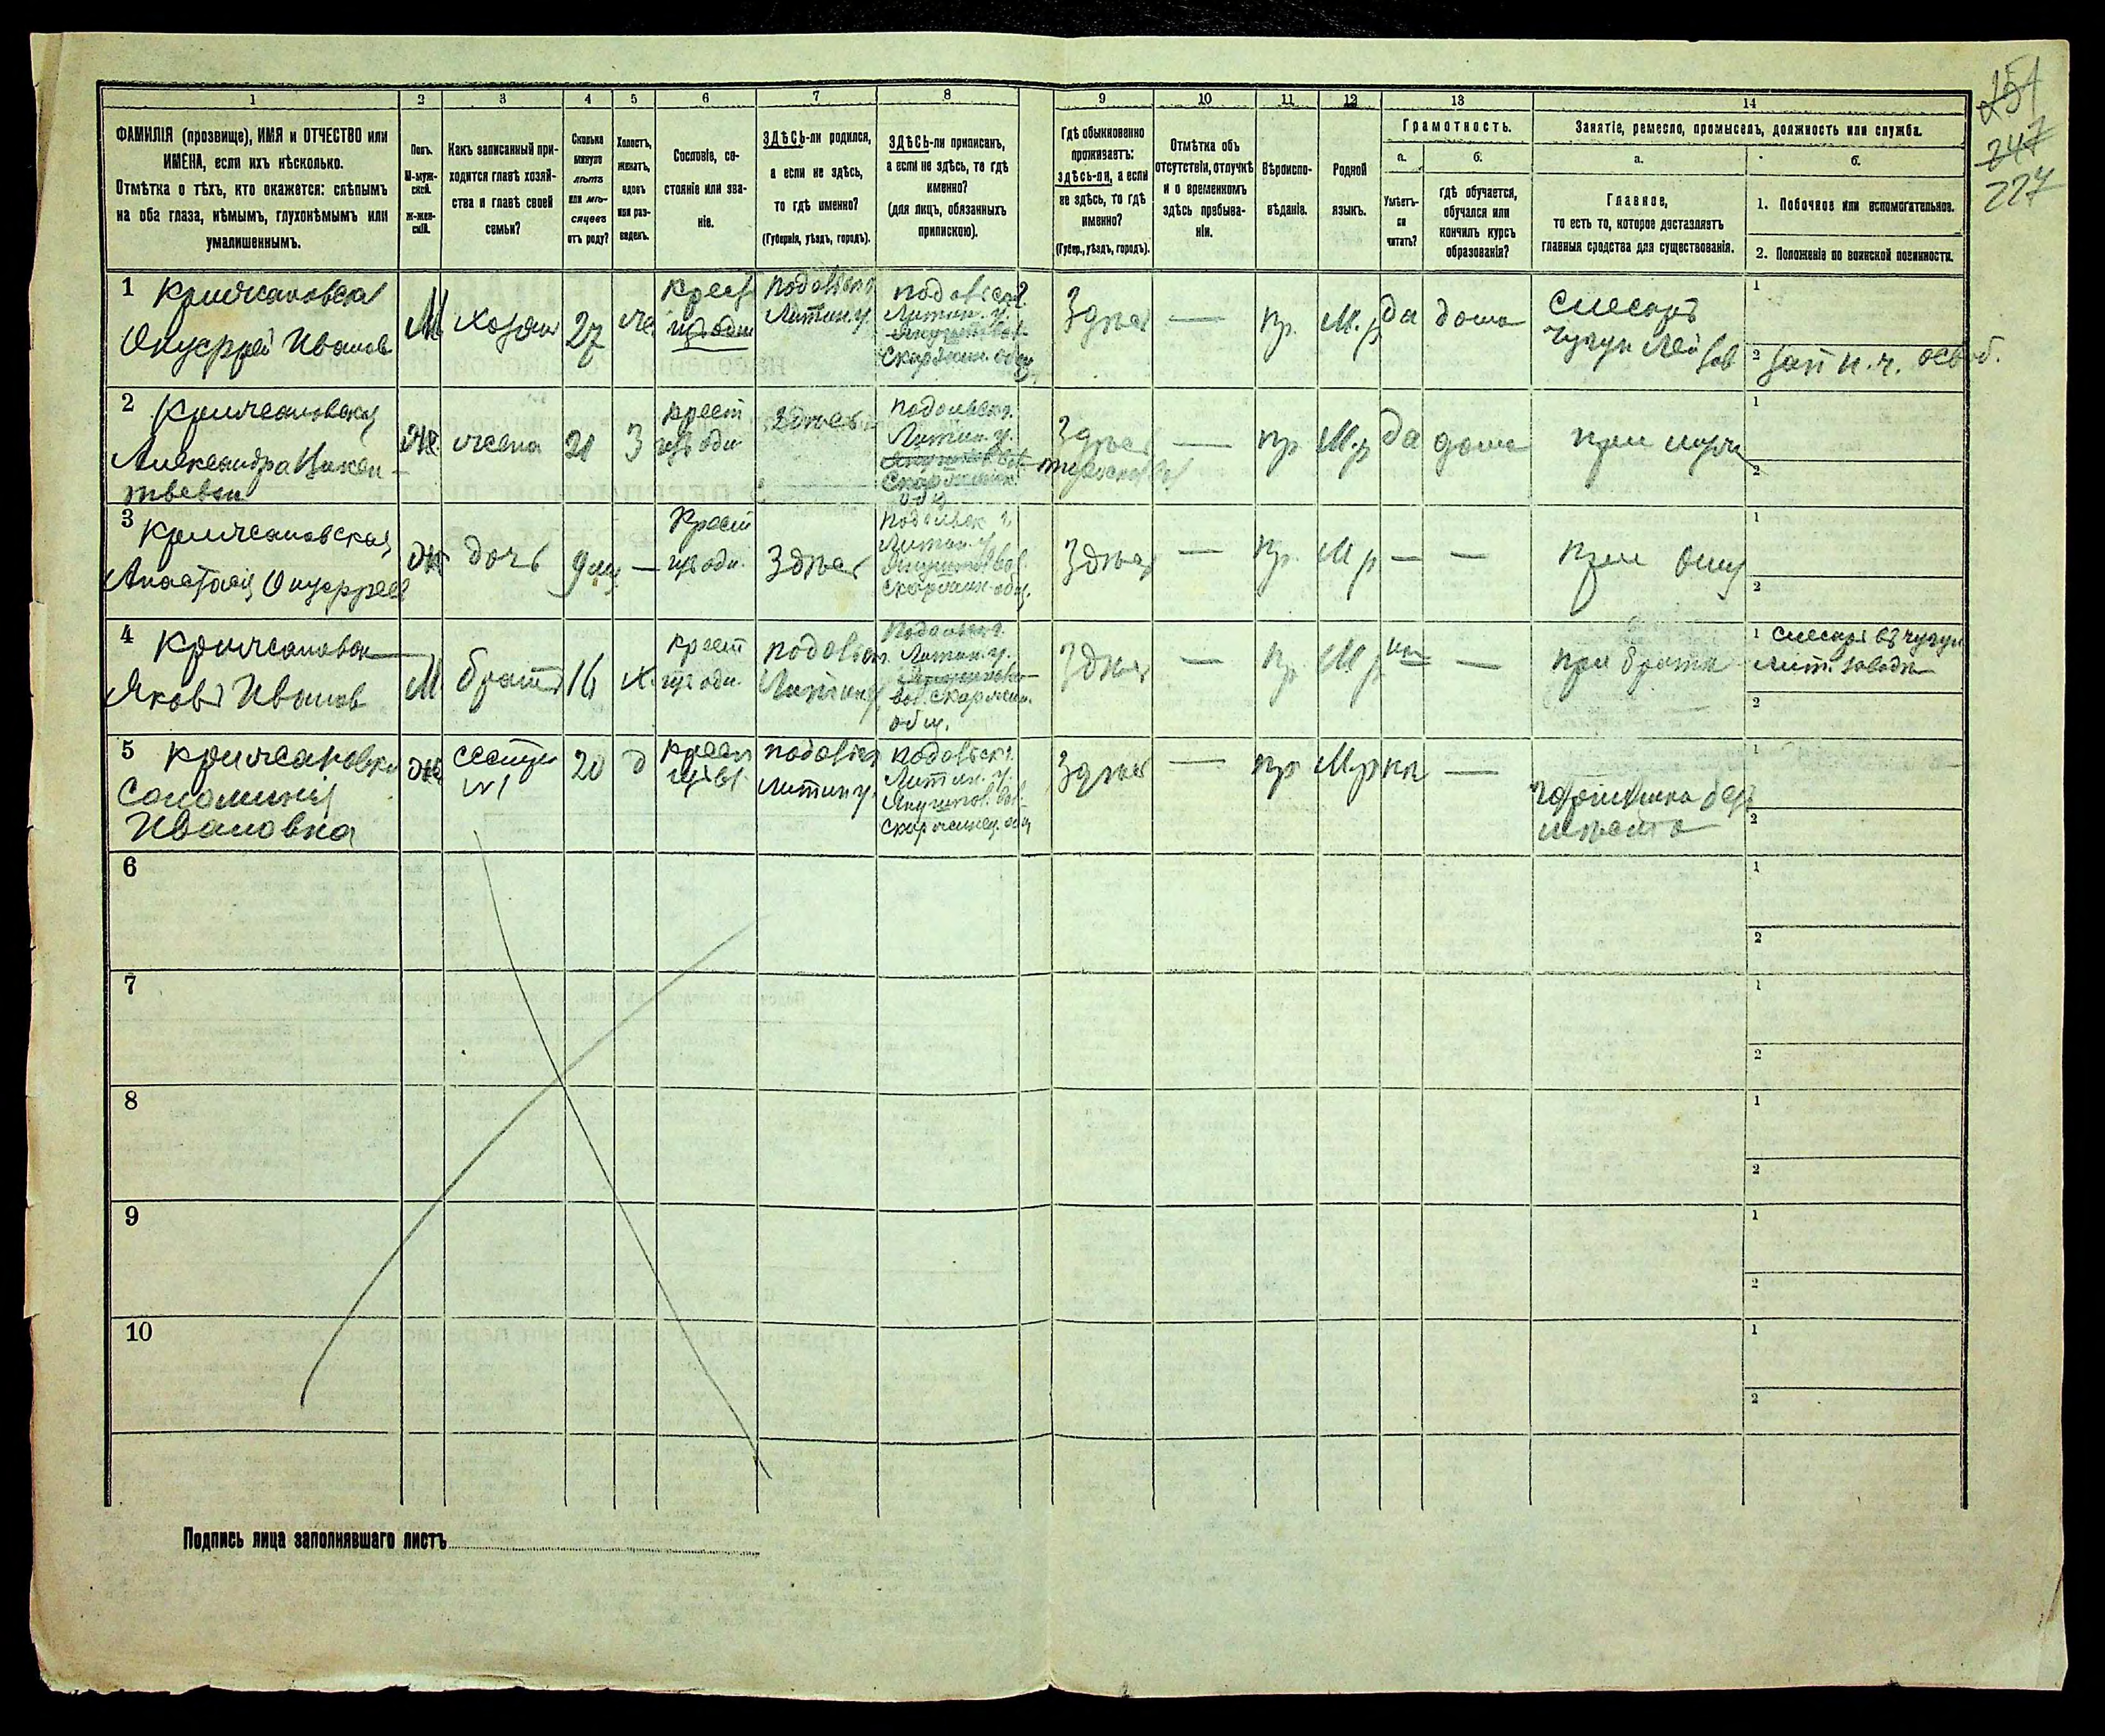 151
247
227
1 2 3 4 5 6 7 8 9 10 11 12 13 14
ФАМИЛІЯ (прозвище), ИМЯ и ОТЧЕСТВО или
ИМЕНА, если ихъ нѣсколько.
Отмѣтка о тѣхъ, кто окажется: слѣпымъ
на оба глаза, нѣмымъ, глухонѣмымъ или
умалишеннымъ.
Полъ.
М-муж-
ской.
Ж-жен-
скій.
Какъ записанный при-
ходится главѣ хозяй-
ства и главѣ своей
семьи?
Сколько
минуло
лѣтъ
или мѣ-
сяцевъ
отъ роду?
Холостъ,
женатъ,
вдовъ
или раз-
веденъ.
Сословіе, со-
стояніе или зва-
ніе.
ЗДѢСЬ-ли родился,
а если не здѣсь,
то гдѣ именно?
(Губернія, уѣздъ, городъ).
ЗДѢСЬ-ли приписан,
а если не здѣсь, то гдѣ
именно?
(для лицъ, обязанныхъ
припискою).
Гдѣ обыкновенно
проживаетъ:
здѣсь-ли, а если
не здѣсь, то гдѣ
именно?
(Губер., уѣздъ, городъ).
Отмѣтка объ
отсутствіи, отлучкѣ
и о временномъ
здѣсь пребыва-
ніи.
Вѣроиспо-
вѣданіе.
Родной
языкъ.
Грамотность.
а. б.
Умѣетъ-
ли
читать?
гдѣ обучается,
обучался или
кончилъ курсъ
образованія?
Занятіе, ремесло, промыселъ, должность или служба.
а. б.
Главное,
то есть то, которое доставляетъ
главныя средства для существованія.
1. Побочное или вспомогательное.
2. Положеніе по воинской повинности.
1 Крижановскій
Онуфрій Иванов
М
хозяин
27
же
Крест
из общ
Подольск г.
Литин. у.
Подольск г.
Литин. у.
Скаржин. общ.
Здѣсь
—
пр.
М. р
да
дома
Слесарь
Чугун
1
2 зап н. ч. освоб.
2 Крижановская
Александра Викен-
тьевна
Ж
жена
21
З
крест
из общ
Здѣсь
Подольск г.
Литин. у.
Скаржин.
общ
Здѣсь
—
пр
М. р
да
дома
при мужѣ
1
2
3 Крижановская
Анастасія Онуфрее
Ж
дочь
9 м
—
Крест
из общ.
Здѣсь
Подольск г.
Литин. у.
Скаржин. общ.
Здѣсь
—
пр.
М р
—
—
при отцѣ
1
2
4 Крижановск
Яковъ Иванов
М
братъ
16
х.
крест
из общ.
Подольск
Литин у
Подольск г.
Литин. у.
вол. Скаржин.
общ.
Здѣсь
—
пр.
М р
нѣт
—
при братѣ
1 слесарь въ чугун
лит. заводѣ
2
5 Крижановска
Соломинія
Ивановна
Ж
сестра
№1
20
д
крест
Подольск
Литин у.
Подольск г.
Литин. у.
Якушинов. вол.
Скаржинец. общ
Здѣсь
—
пр
М р
нѣ
—
горничная без
мѣста
1
2
6
1
2
7
1
2
8
1
2
9
1
2
10
1
2
Подпись лица заполнявшаго листъ